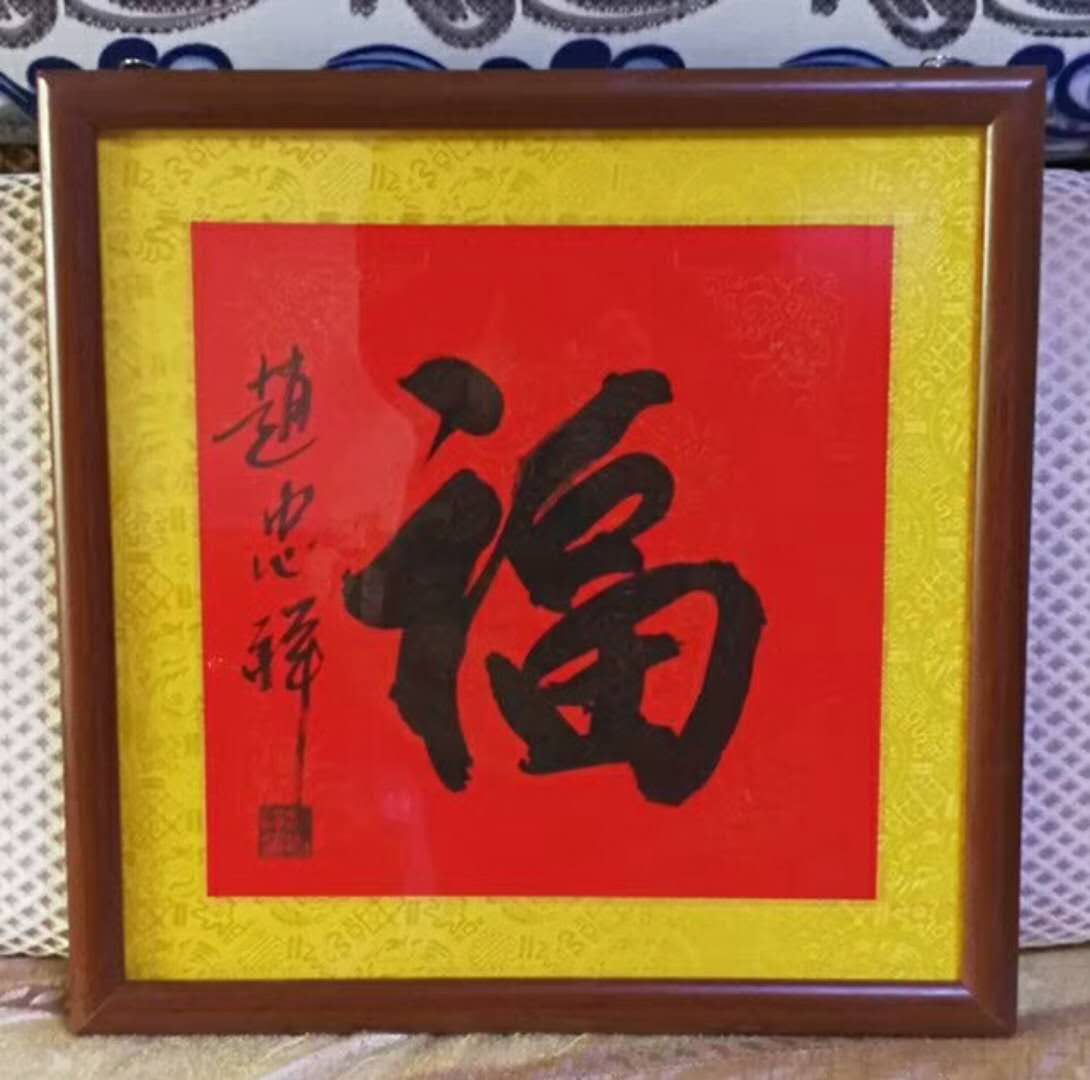 福
趙忠祥